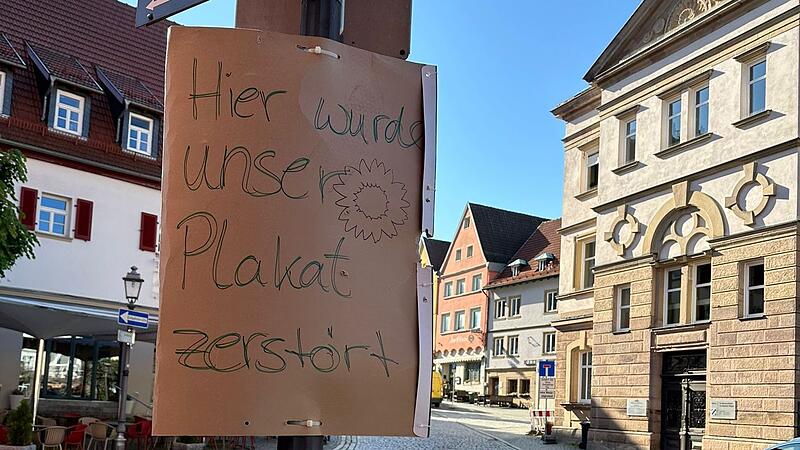 Hier wurde
unser
Plakat
zerstört